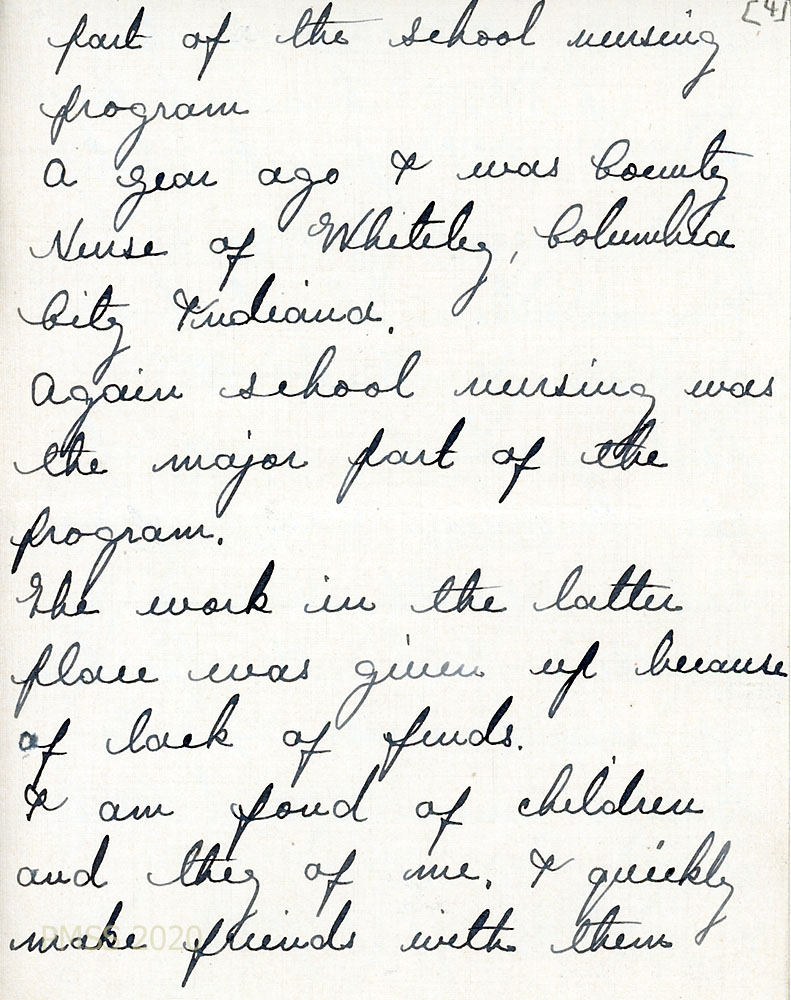 [4]
part of the school nursing
program
A year ago I was County
Nurse of Whiteley, Columbia
City Indiana.
Again school nursing was
the major part of the
program.
The work in the latter
place was given up because
of lack of funds.
I am fond of children
and they of me. I quickly
make friends with them
PMSS 2020